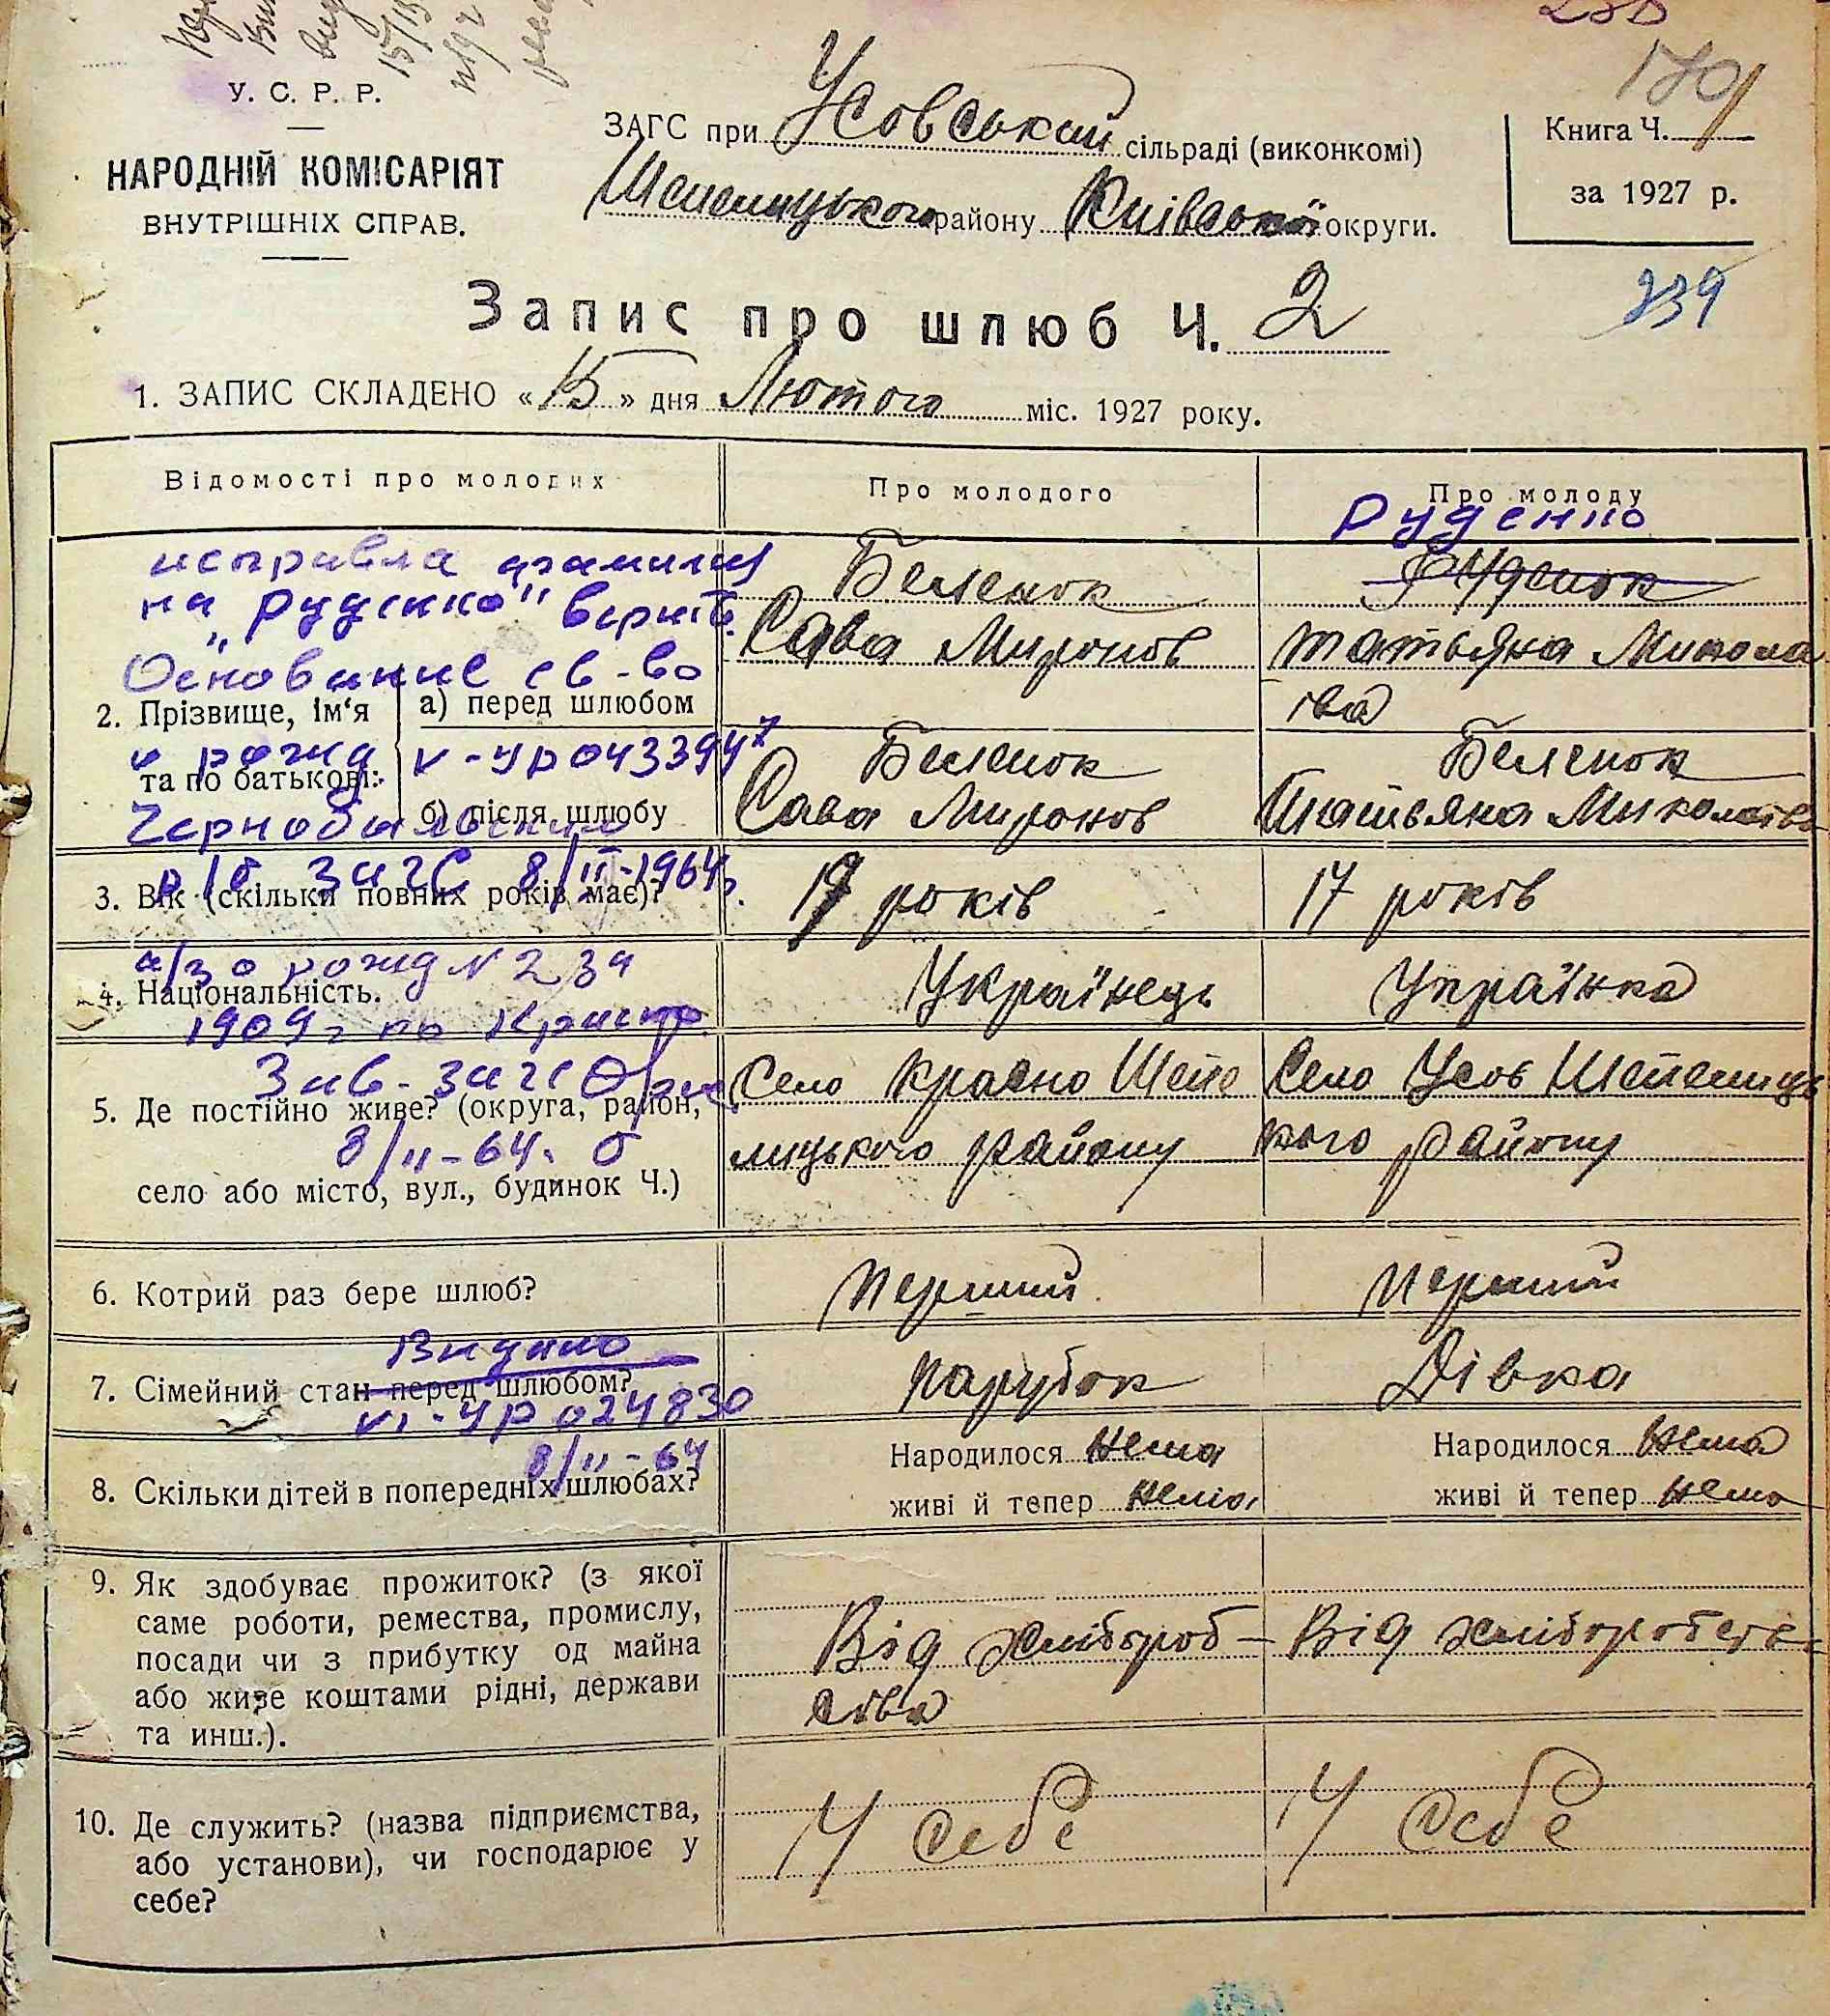 У. С. Р. Р.
НАРОДНІЙ КОМІСАРІЯТ
ВНУТРІШНІХ СПРАВ.
ЗАГС при Усовський сільраді (виконкомі)
Шепелицького району Київської округи.
Книга Ч.
за 1927 р.
239
Запис про шлюб Ч. 2
1. ЗАПИС СКЛАДЕНО «15» дня Лютого міс. 1927 року.
Відомості про молодих
Про молодого
Про молоду
Руденко
исправла фамилия
на „Руденко" верить.
Основание св-во
о рожд V-УР 0433947
Чернобыльским
р/б ЗАГС 8/II-1964г.
а/з о рожд N 239
1909г по Красно
Зав. загс
8/II-64.
2. Прізвище, ім'я та по батькові:
а) перед шлюбом
Беленок
Сава Миронов
Руденок
Татьяна Микола
іва
б) після шлюбу
Беленок
Сава Миронов
Беленок
Татьяна Миколаіва
3. Вік (скільки повних років має)?
19 років
17 років
4. Національність.
Українець
Українка
5. Де постійно живе? (округа, район,
село або місто, вул., будинок Ч.)
Село Красно Шепе
лицького району
Село Усов Шепелиць
кого району
6. Котрий раз бере шлюб?
перший
перший
7. Сімейний стан перед шлюбом?
парубок
Дівка
Видано
VI-УР 024830
8/II-64
8. Скільки дітей в попередніх шлюбах?
Народилося нема
живі й тепер нема
Народилося нема
живі й тепер нема
9. Як здобуває прожиток? (з якої
саме роботи, ремества, промислу,
посади чи з прибутку од майна
або живе коштами рідні, держави
та инш.).
Від хлібороб-
ства
Від хліборобств
10. Де служить? (назва підприємства,
або установи), чи господарює у
себе?
У себе
У себе